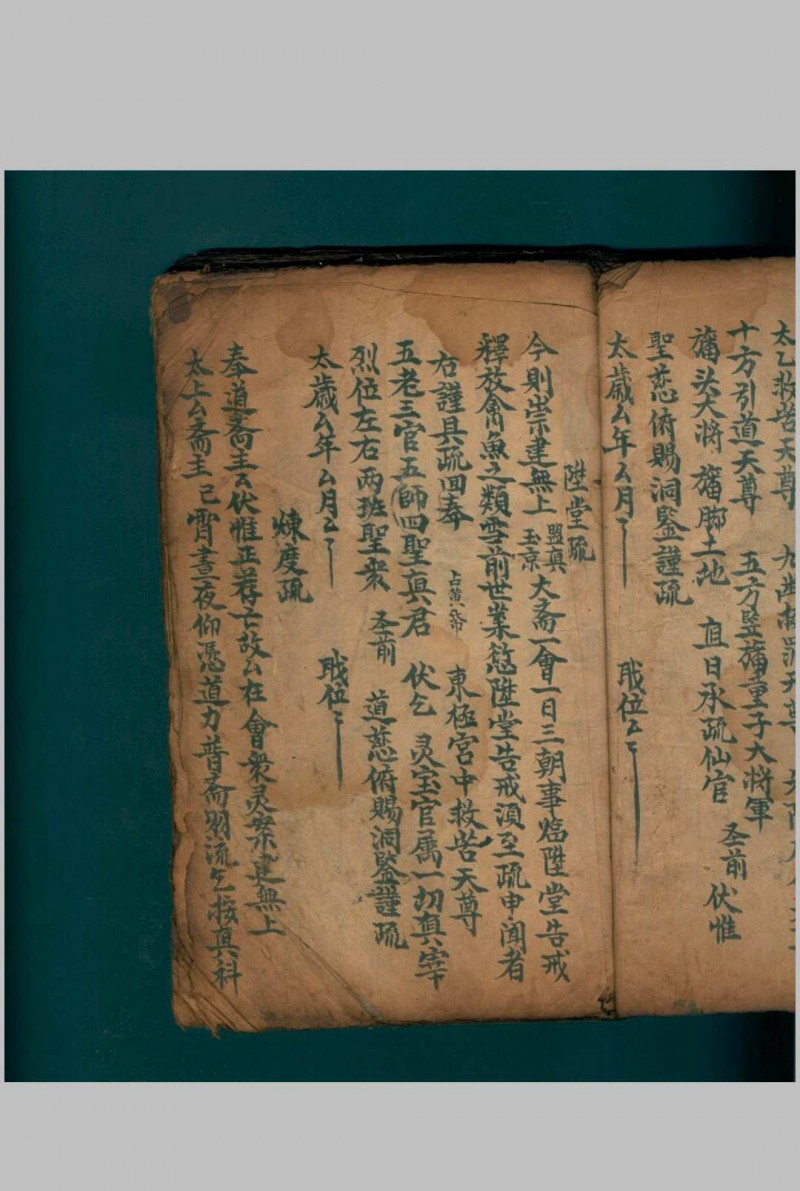 太乙救苦天尊　九幽拔罪天尊
十方引道天尊　五方竪旛童子大將軍
旛头大將　旛脚土地　直日承疏仙官　圣前　伏惟
聖慈俯賜洞鑒謹疏
太歲厶年厶月　職位
陞堂疏
今則崇建無上盟真玉京大斋一會一日三朝事臨陞堂告戒
釋放禽魚之類雪前世業愆陞堂告戒須至疏申闻者
右謹具疏回奉　東極宮中救苦天尊
五老三官五師四聖真君　伏乞　灵宝官属一切真宰
烈位左右兩班聖衆　圣前　道慈俯賜洞鑒謹疏
太歲厶年厶月　職位
煉度疏
奉道斋主厶伏惟正荐亡故厶在會衆灵崇建無上
太上厶斋主己霄晝夜仰憑道力普斋羽流乞按真科